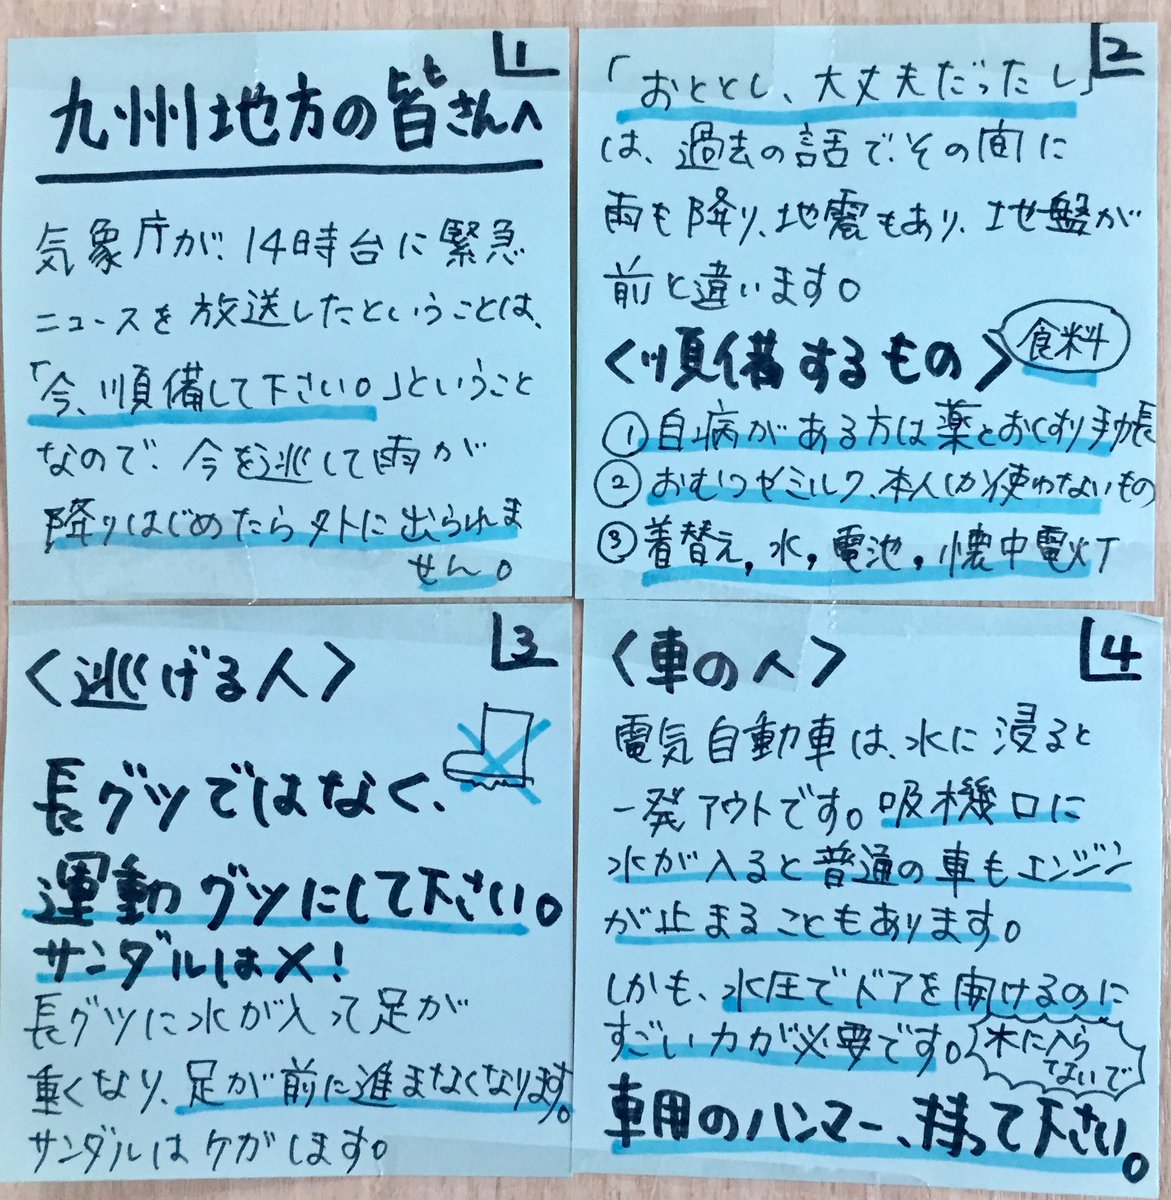 1
九州地方の皆さんへ
気象庁が、14時台に緊急
ニュースを放送したということは、
「今、順備して下さい。」ということ
なので、今を逃して雨が
降りはじめたら外に出られま
せん。
2
「おととし、大丈夫だったし」
は、過去の話で、その間に
雨も降り、地震もあり、地盤が
前と違います。
〈順備するもの〉
食料
①自病がある方は薬とおくすり手帳
②おむつやミルク、本人しか使わないもの
③着替え,水,電池,懐中電灯
3
〈逃げる人〉
長グツではなく、
運動グツにして下さい。
サンダルは×!
長グツに水が入って足が
重くなり、足が前に進まなくなります。
サンダルはケガします。
4
〈車の人〉
電気自動車は、水に浸ると
一発アウトです。吸機口に
水が入ると普通の車もエンジン
が止まることもあります。
しかも、水圧でドアを開けるのに
すごい力が必要です。
水に入ら
ないで
車用のハンマー、持って下さい。